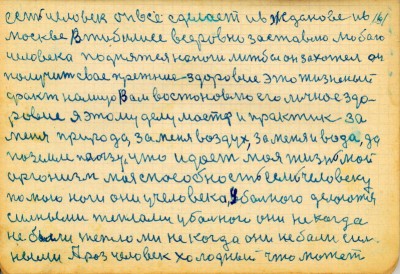 есть человек он все сделает и в Жданове и в 141
москве В тобилисе все ровно заставлю любого
человека поднятся на ноги лиж бы он захотел он
получит свае прежние – здоровие Это жизненый
факт на лицо Вам востоновлю его личное здо-
ровие я этому делу мастер и практик за
меня природа, за меня воздух, за меня и вода, да
по земле ползу, что и дает моя жизнь мой
организм моя способность если человеку
помогло ноги они у человека, у болного делаются
силными теплами у болного они не когда
не были тепломи не когда они не бали сил-
ными А роз человек холодный что может